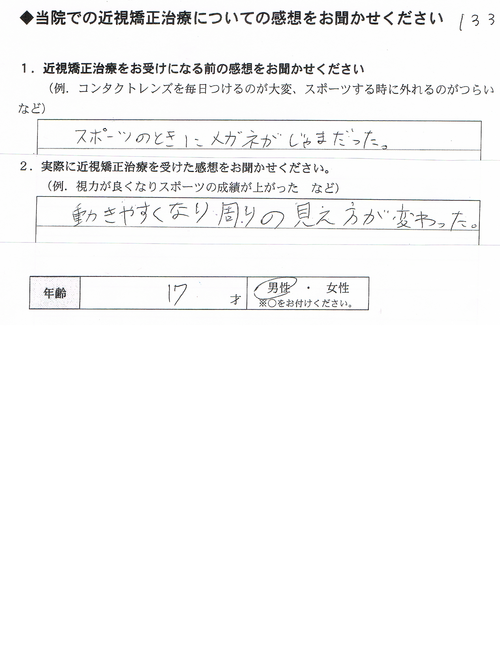 ◆当院での近視矯正治療についての感想をお聞かせください 133
1．近視矯正治療をお受けになる前の感想をお聞かせください
（例．コンタクトレンズを毎日つけるのが大変、スポーツする時に外れるのがつらい
など）
スポーツのときにメガネがじゃまだった。
2．実際に近視矯正治療を受けた感想をお聞かせください。
（例．視力が良くなりスポーツの成績が上がった など）
動きやすくなり周りの見え方が変わった。
年齢 17 才 男性 ・ 女性
※〇をお付けください。